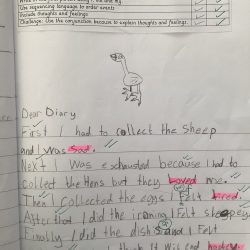 Use sequencing language to order events
Include thoughts and feelings
Challenge: Use the conjunction because to explain thoughts and feelings.
Dear Diary
First I had to collect the sheep
and I was sad.
Next I was exhausted because I had to
collect the Hens but they loved me.
Then I collected the eggs I felt
After that I did the ironing I felt
Finally I did the dishes and I felt
I think it was